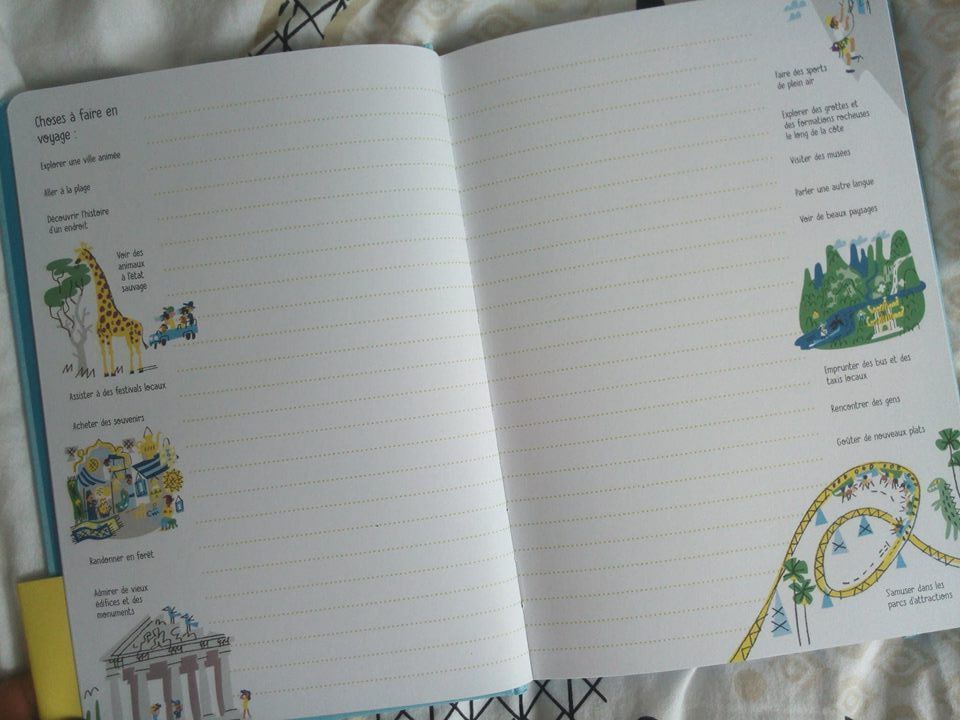 Choses à faire en
voyage :
Explorer une ville animée
Aller à la plage
Découvrir l'histoire
d'un endroit
Voir des
animaux
à l'état
sauvage
Assister à des festivals locaux
Acheter des souvenirs
Randonner en forêt
Admirer de vieux
édifices et des
monuments
Faire des sports
de plein air
Explorer des grottes et
des formations rocheuses
le long de la côte
Visiter des musées
Parler une autre langue
Voir de beaux paysages
Emprunter des bus et des
taxis locaux
Rencontrer des gens
Goûter de nouveaux plats
S'amuser dans les
parcs d'attractions